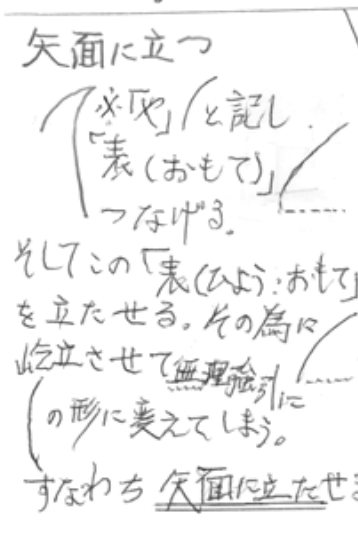 矢面に立つ
※「や」と記し
「表(おもて)」
つなげる。
そしてこの「表(ひよう:おもて)
を立たせる。その為に
屹立させて無理強引に
の形に変えてしまう。
すなわち 矢面に立たせる